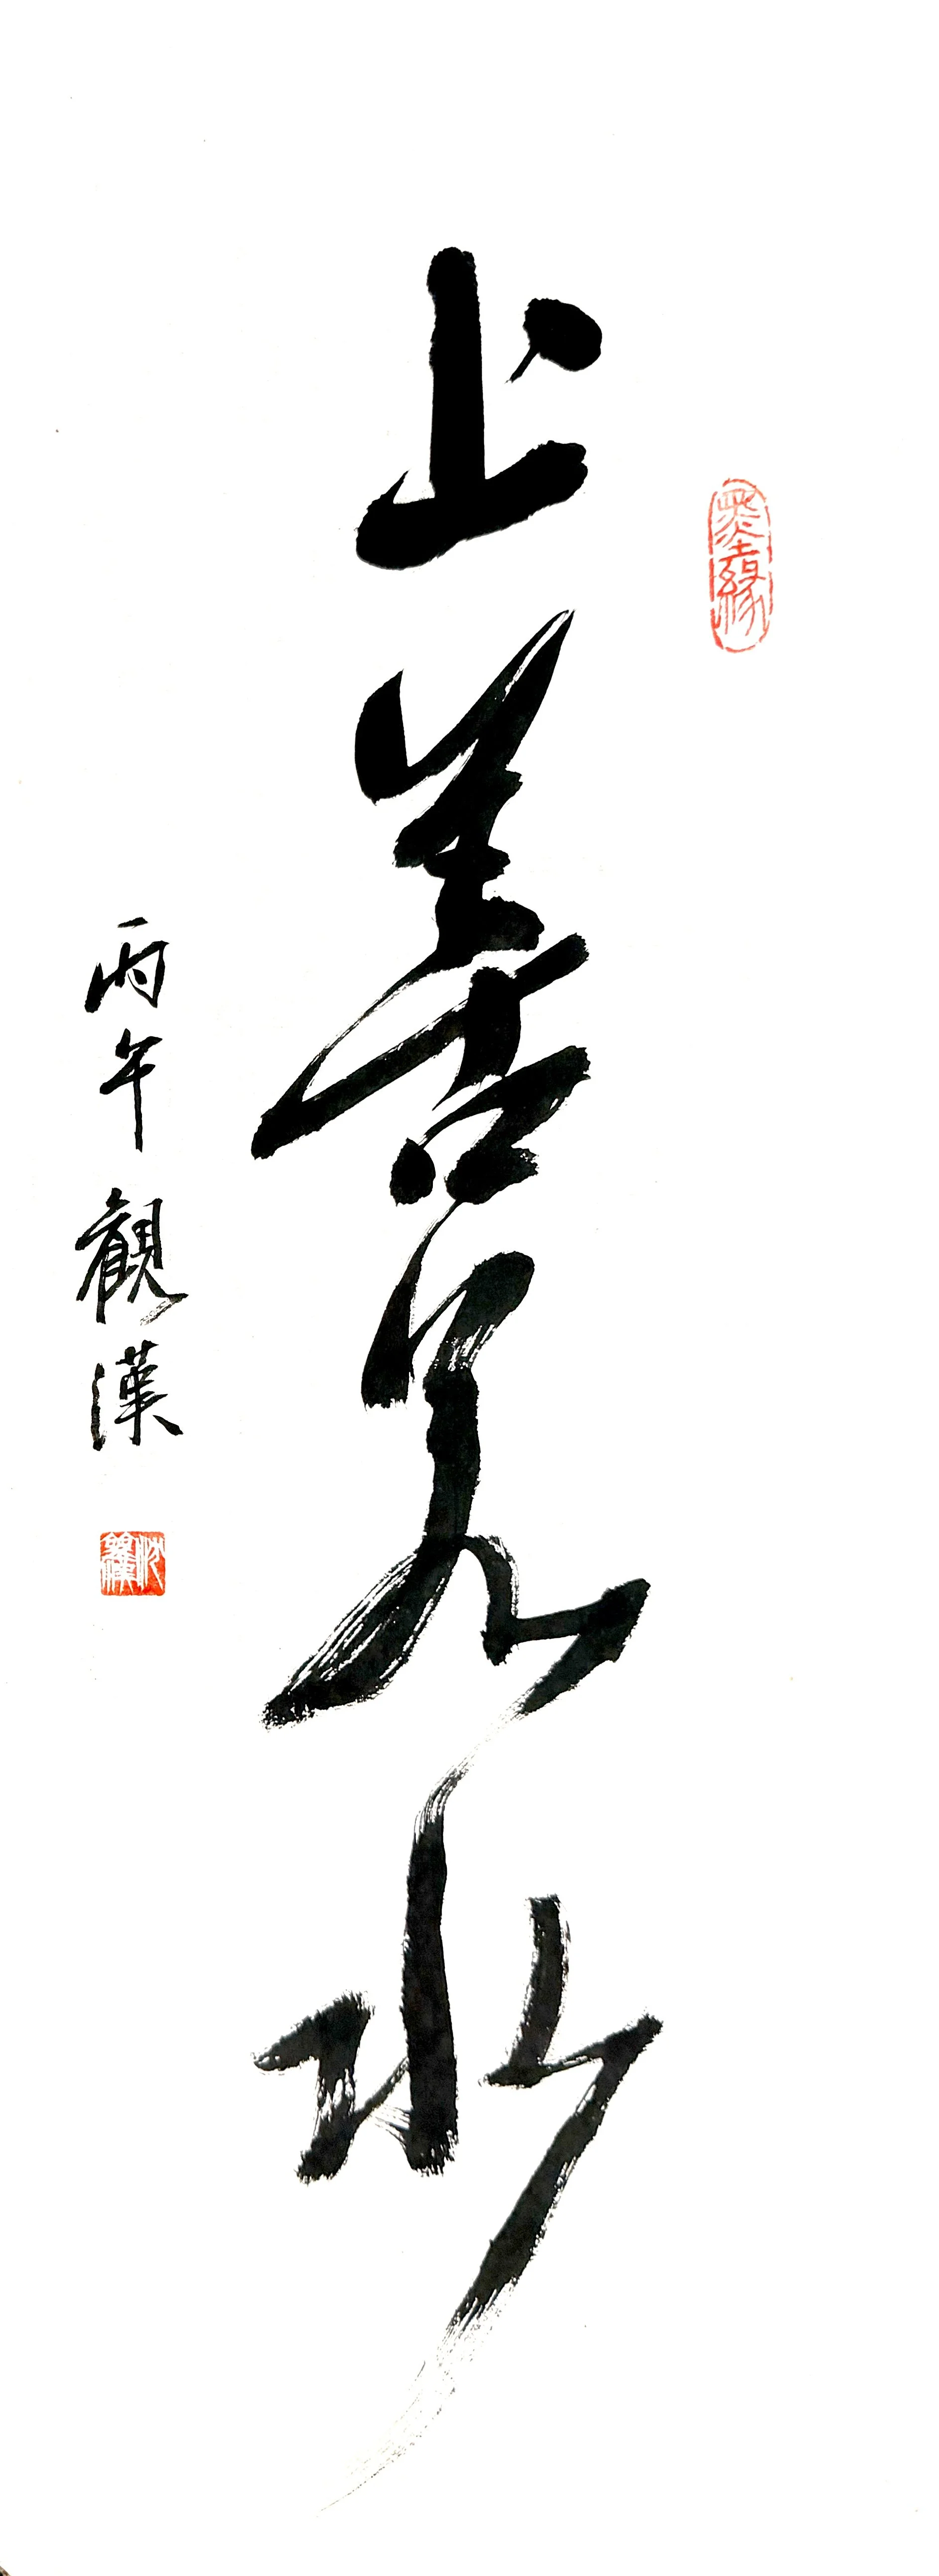 墨緣
上善若水
丙午 觀漢